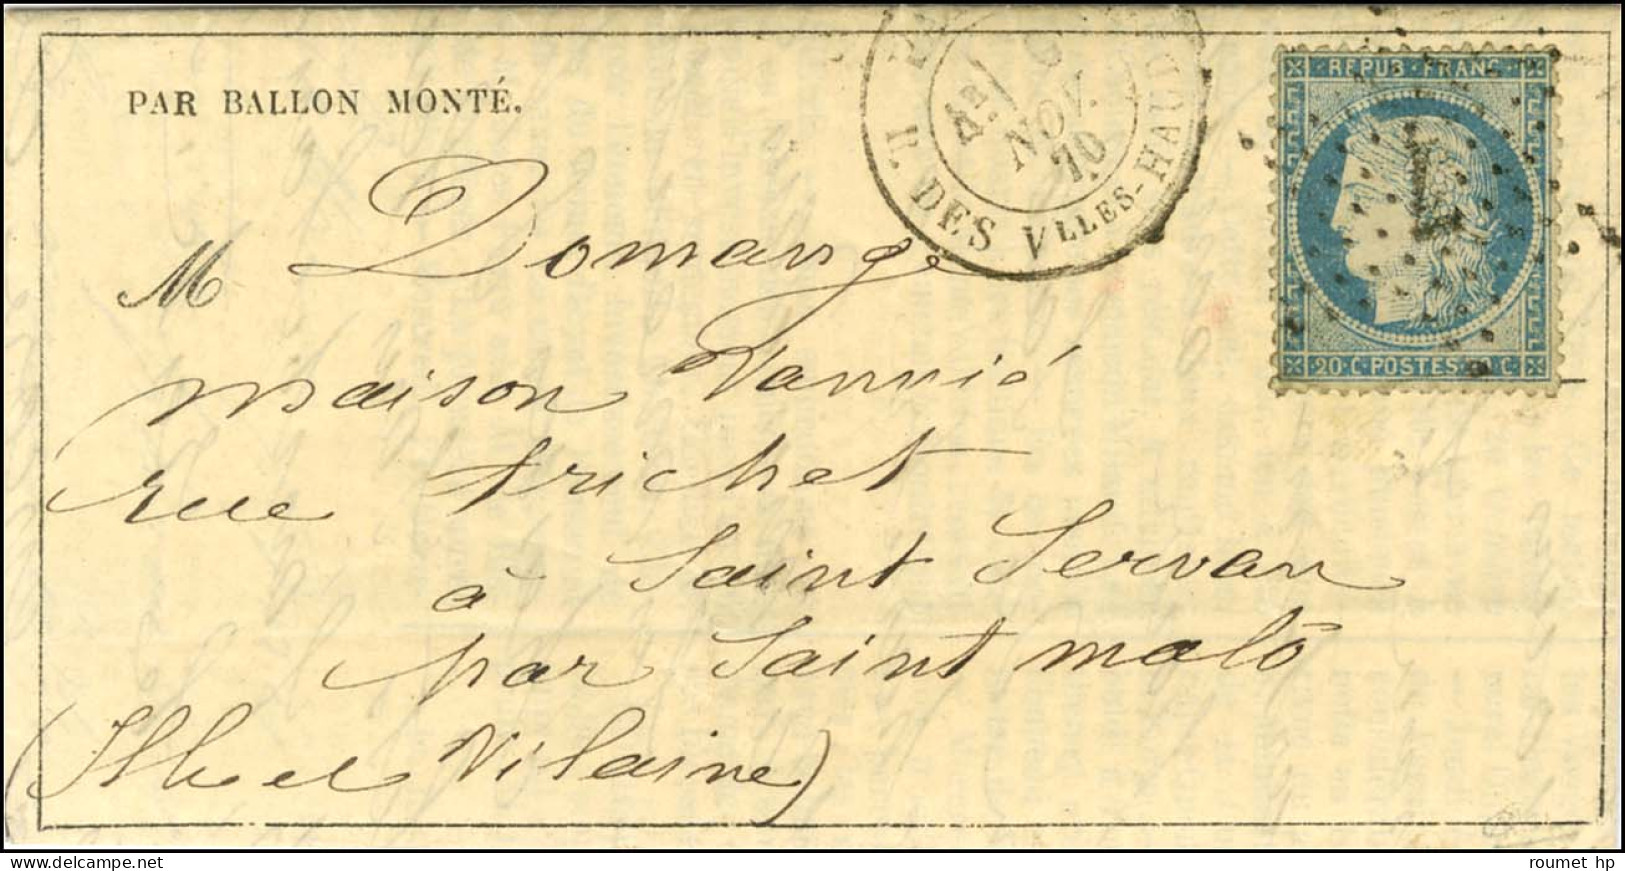 PAR BALLON MONTÉ.
4E/ 6
NOV.
70
R. DES VLLES-HAUD
REPUB·FRANC
20·C·POSTES·20·C
M Domange
maison Vannié
rue trichet
à Saint Servan
par Saint malô
(Ille et Vilaine)
roumet hp